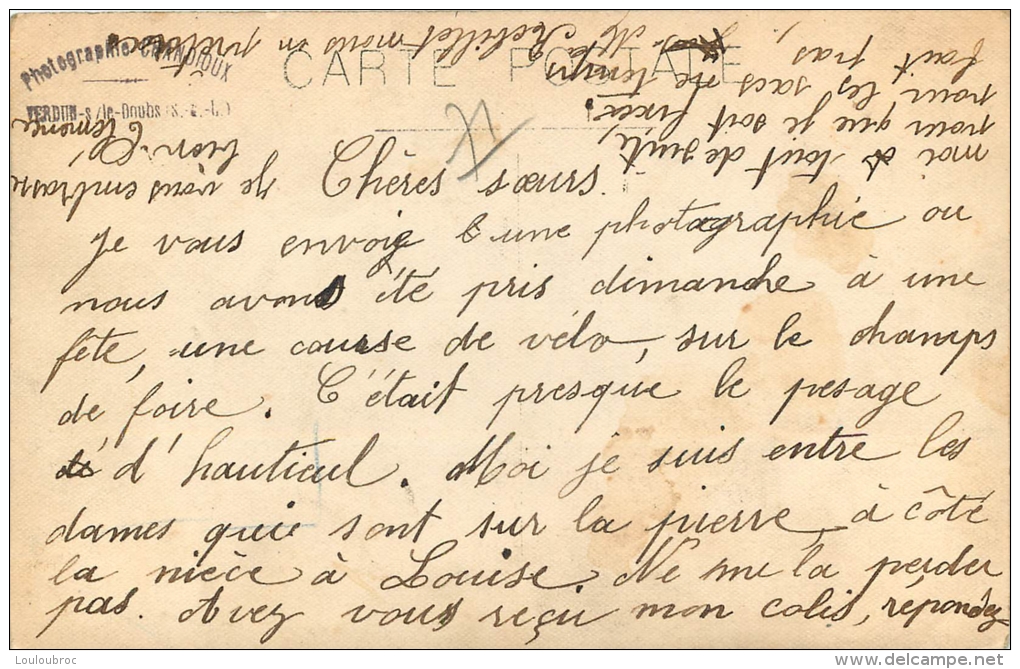 Photographie CHANDIOUX
VERDUN-s/le-Doubs (S.-&-L.)
CARTE POSTALE
Chères sœurs.
Je vous envoie une photographie ou
nous avons été pris dimanche à une
fête, une course de vélo, sur le champs
de foire. C'était presque le pesage
d'hautieul. Moi je suis entre les
dames qui sont sur la pierre, à côté
la nièce à Louise. Ne me la perder
pas. Avez vous reçu mon colis, répondez
moi tout de suite,
pour que je soit fixée
pour les sacs ne
faut pas
mons en prévose
Je vous embrasse
bien
Clémence
Louloubroc
www.delcampe.net